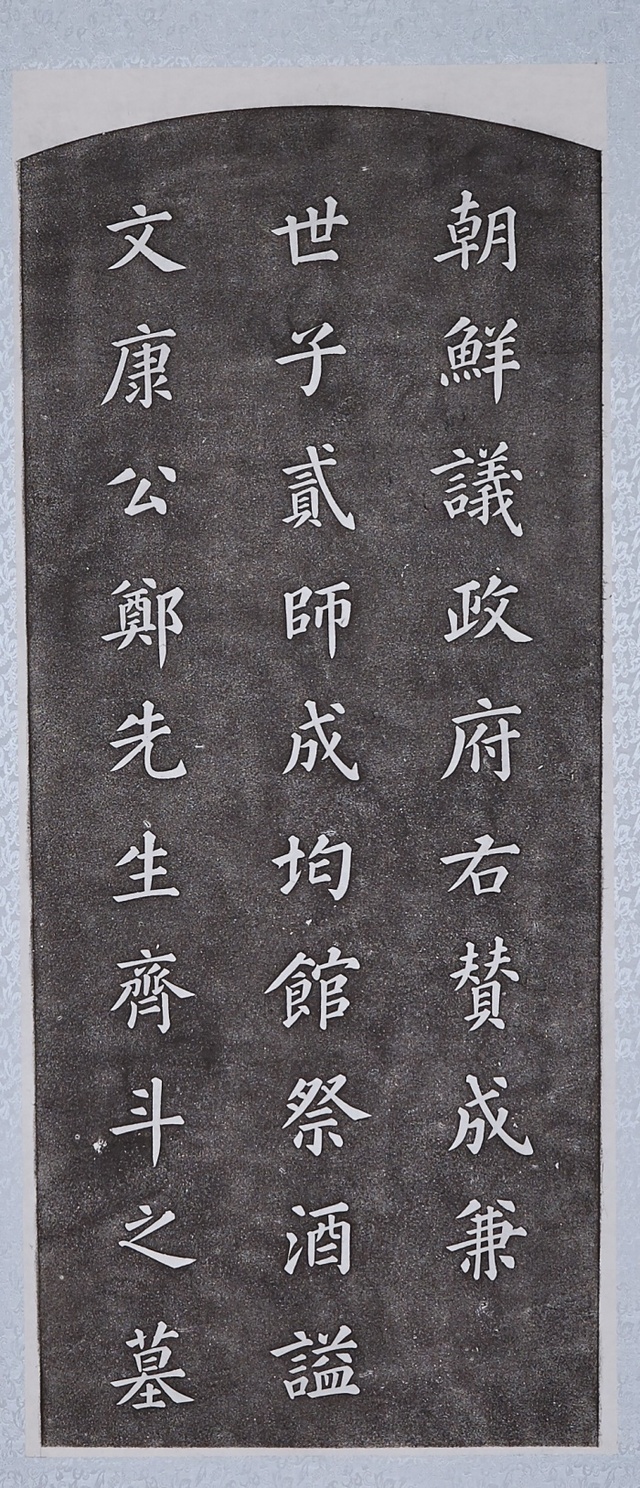 朝鮮議政府右贊成兼
世子貳師成均館祭酒謚
文康公鄭先生齊斗之墓